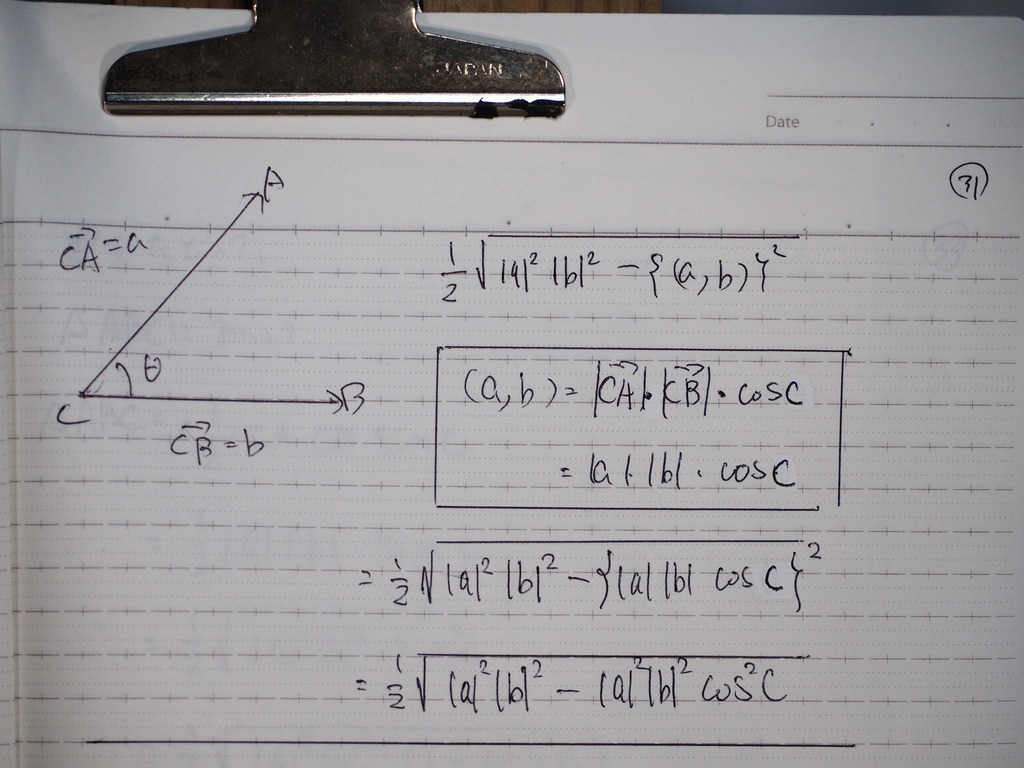 JAPAN
Date
31
A
CA = a
θ
C
B
CB = b
1/2 √|a|² |b|² - {(a, b)}²
(a, b) = |CA|·|CB|·cosC
= |a|·|b|·cosC
= 1/2 √|a|² |b|² - {|a| |b| cosC}²
= 1/2 √|a|² |b|² - |a|² |b|² cos²C